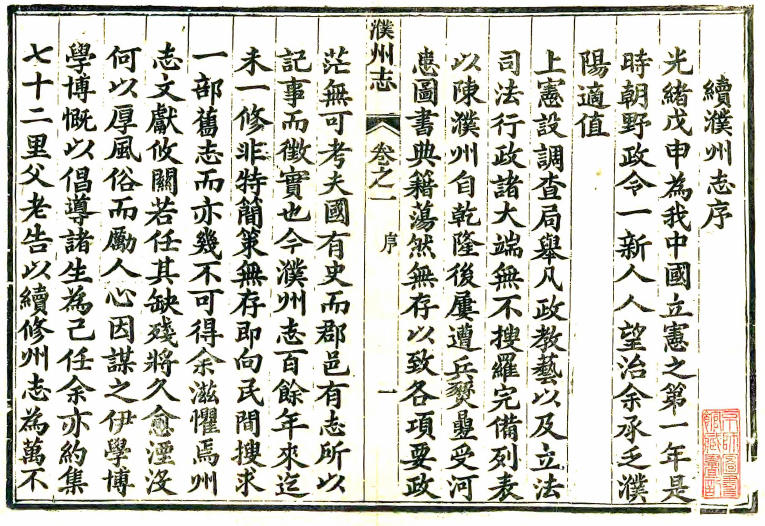 續濮州志序
光緒戊申為我中國立憲之第一年是
時朝野政令一新人人望治余承乏濮
陽適值
上憲設調查局舉凡政教藝以及立法
司法行政諸大端無不搜羅完備列表
以陳濮州自乾隆後屢遭兵燹疊受河
患圖書典籍蕩然無存以致各項要政
濮州志
卷之一
序
一
茫無可考夫國有史而郡邑有志所以
記事而徵實也今濮州志百餘年來迄
未一修非特簡策無存即向民間搜求
一部舊志而亦幾不可得余滋懼焉州
志文獻攸關若任其缺殘將久愈湮沒
何以厚風俗而勵人心因謀之伊學博
學博慨以倡導諸生為己任余亦約集
七十二里父老告以續修州志為萬不